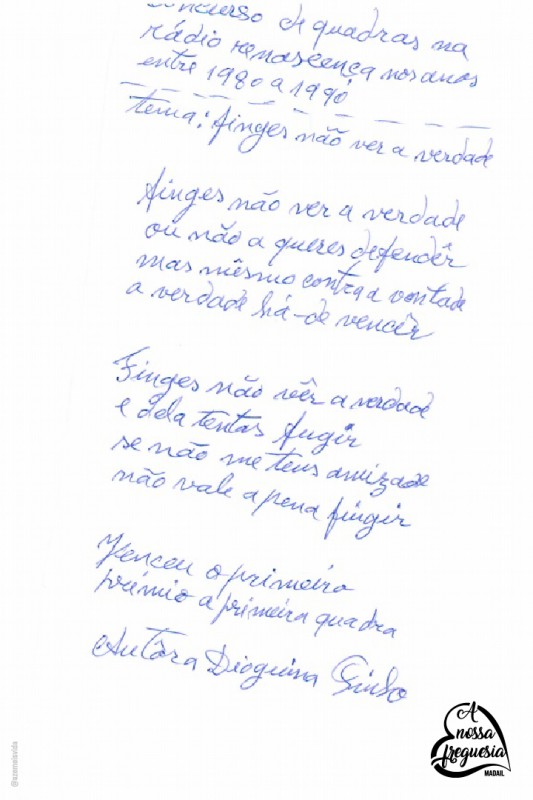 Concurso de quadras na
rádio renascença nos anos
entre 1980 a 1990
tema: finges não ver a verdade
finges não ver a verdade
ou não a queres defendêr
mas mêsmo contra a vontade
a verdade há-de vencêr
Finges não vêr a verdade
e dela tentas fugir
se não me tens amizade
não vale a pena fingir
Venceu o primeiro
prémio a primeira quadra
Autôra Dioguina
A
nossa
freguesia
MADAIL
@azemeisvida